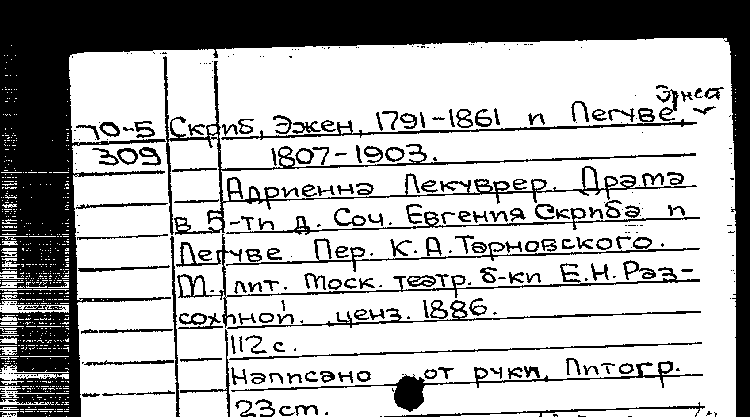 Эрнест
70-5 Скриб, Эжен, 1791-1861 и Легуве,
309 1807-1903.
Адриенна Лекуврер. Драма
в 5-ти д. Соч. Евгения Скриба и
Легуве Пер. К.А.Тарновского.
М., лит. Моск. театр. б-ки Е.Н.Раз-
сохиной. ценз. 1886.
112 с.
Написано от руки, Литогр.
23 cm.